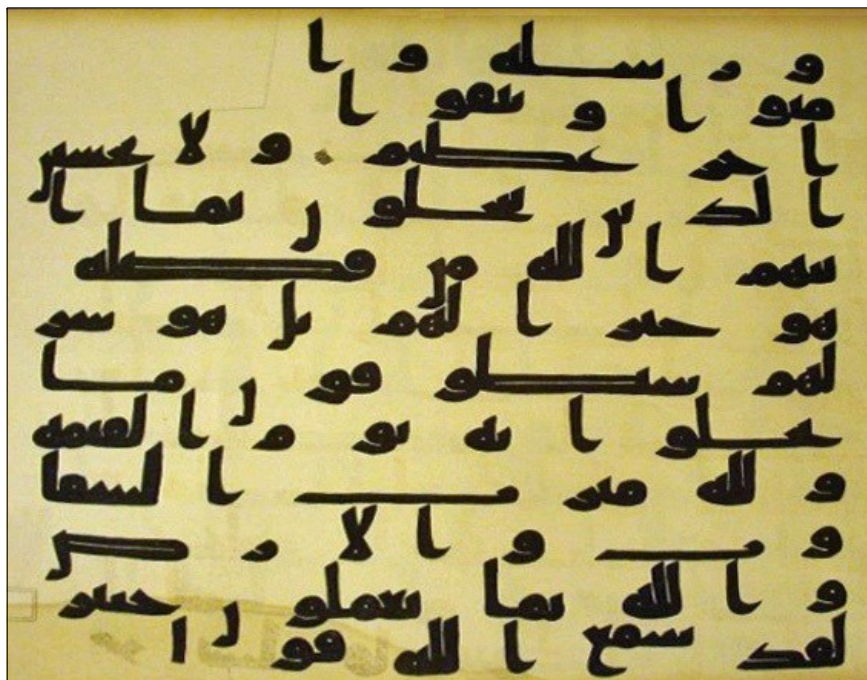 ورسله وا
منوا وتتقوا
اجر عظيم ولا يحسبن
الذين يبخلون بما ا
تيهم الله من فضله
هو خيرا لهم بل هو شر
لهم سيطوقون ما
بخلوا به يوم القيمه
ولله ميرث السما
وت والارض
والله بما تعملون خبير
لقد سمع الله قول ا